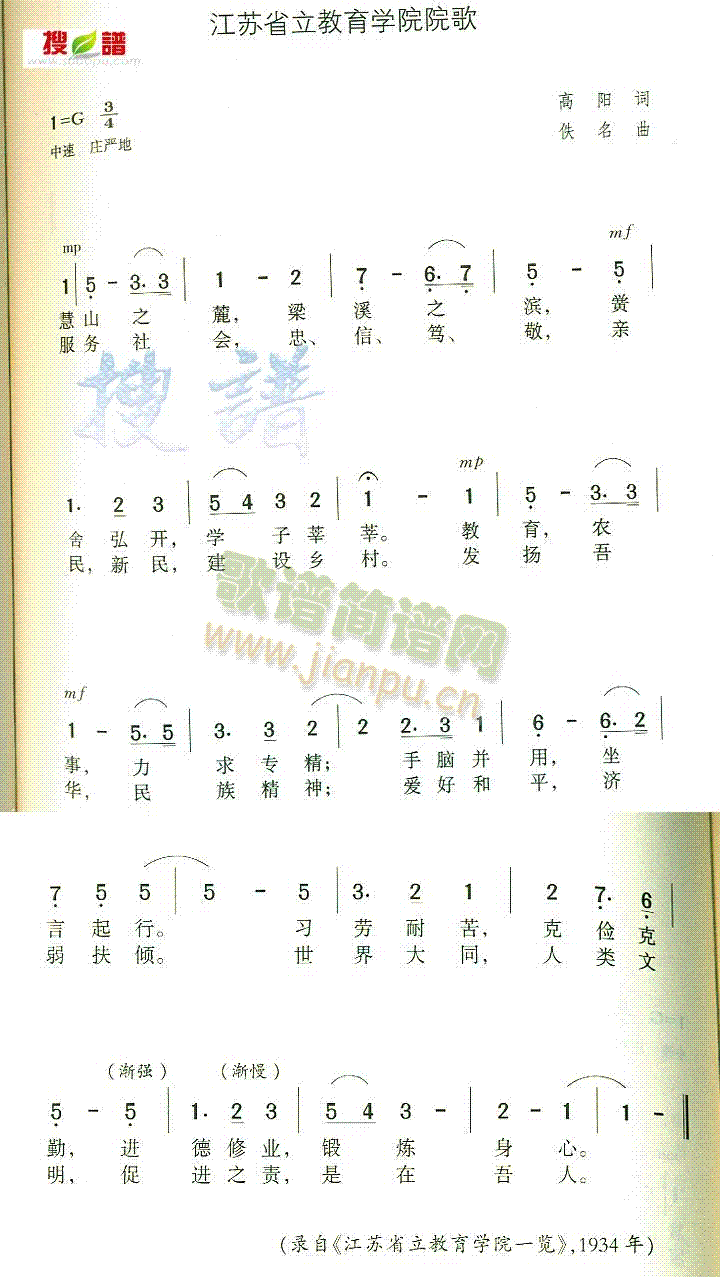 江苏省立教育学院院歌
搜谱
www.sooopu.com
1=G 3/4
高 阳 词
中速 庄严地
佚 名 曲
mp mf
1 | 5 - 3. 3 | 1 - 2 | 7 - 6. 7 | 5 - 5 |
慧 山 之 麓, 梁 溪 之 滨, 黉
服 务 社 会, 忠、 信、 笃、 敬, 亲
搜 譜
mp
1. 2 3 | 5 4 3 2 | 1 - 1 | 5 - 3. 3 |
舍 弘 开, 学 子 莘 莘。 教 育, 农
民, 新 民, 建 设 乡 村。 发 扬 吾
歌谱简谱网
www.jianpu.cn
mf
1 - 5. 5 | 3. 3 2 | 2 2. 3 1 | 6 - 6. 2 |
事, 力 求 专 精; 手 脑 并 用, 坐
华, 民 族 精 神; 爱 好 和 平, 济
7 5 5 | 5 - 5 | 3. 2 1 | 2 7. 6 |
言 起 行。 习 劳 耐 苦, 克 俭 克
弱 扶 倾。 世 界 大 同, 人 类 文
(渐强) (渐慢)
5 - 5 | 1. 2 3 | 5 4 3 - | 2 - 1 | 1 - ‖
勤, 进 德 修 业, 锻 炼 身 心。
明, 促 进 之 责, 是 在 吾 人。
(录自《江苏省立教育学院一览》,1934 年)